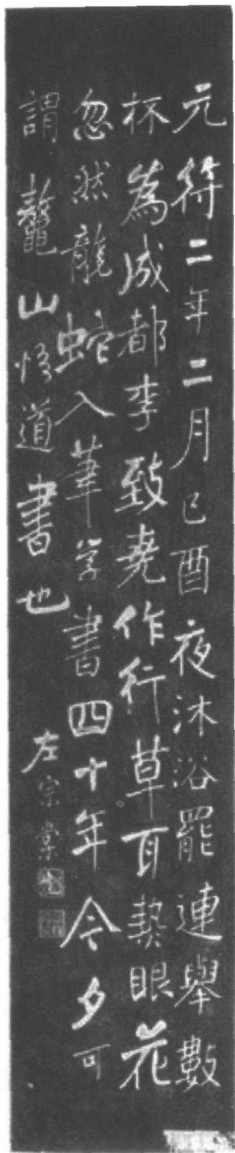 元符二年二月己酉夜沐浴罷連舉數
杯為成都李致堯作行草耳熱眼花
忽然龍蛇入筆學書四十年今夕可
謂鼇山悟道書也
左宗棠